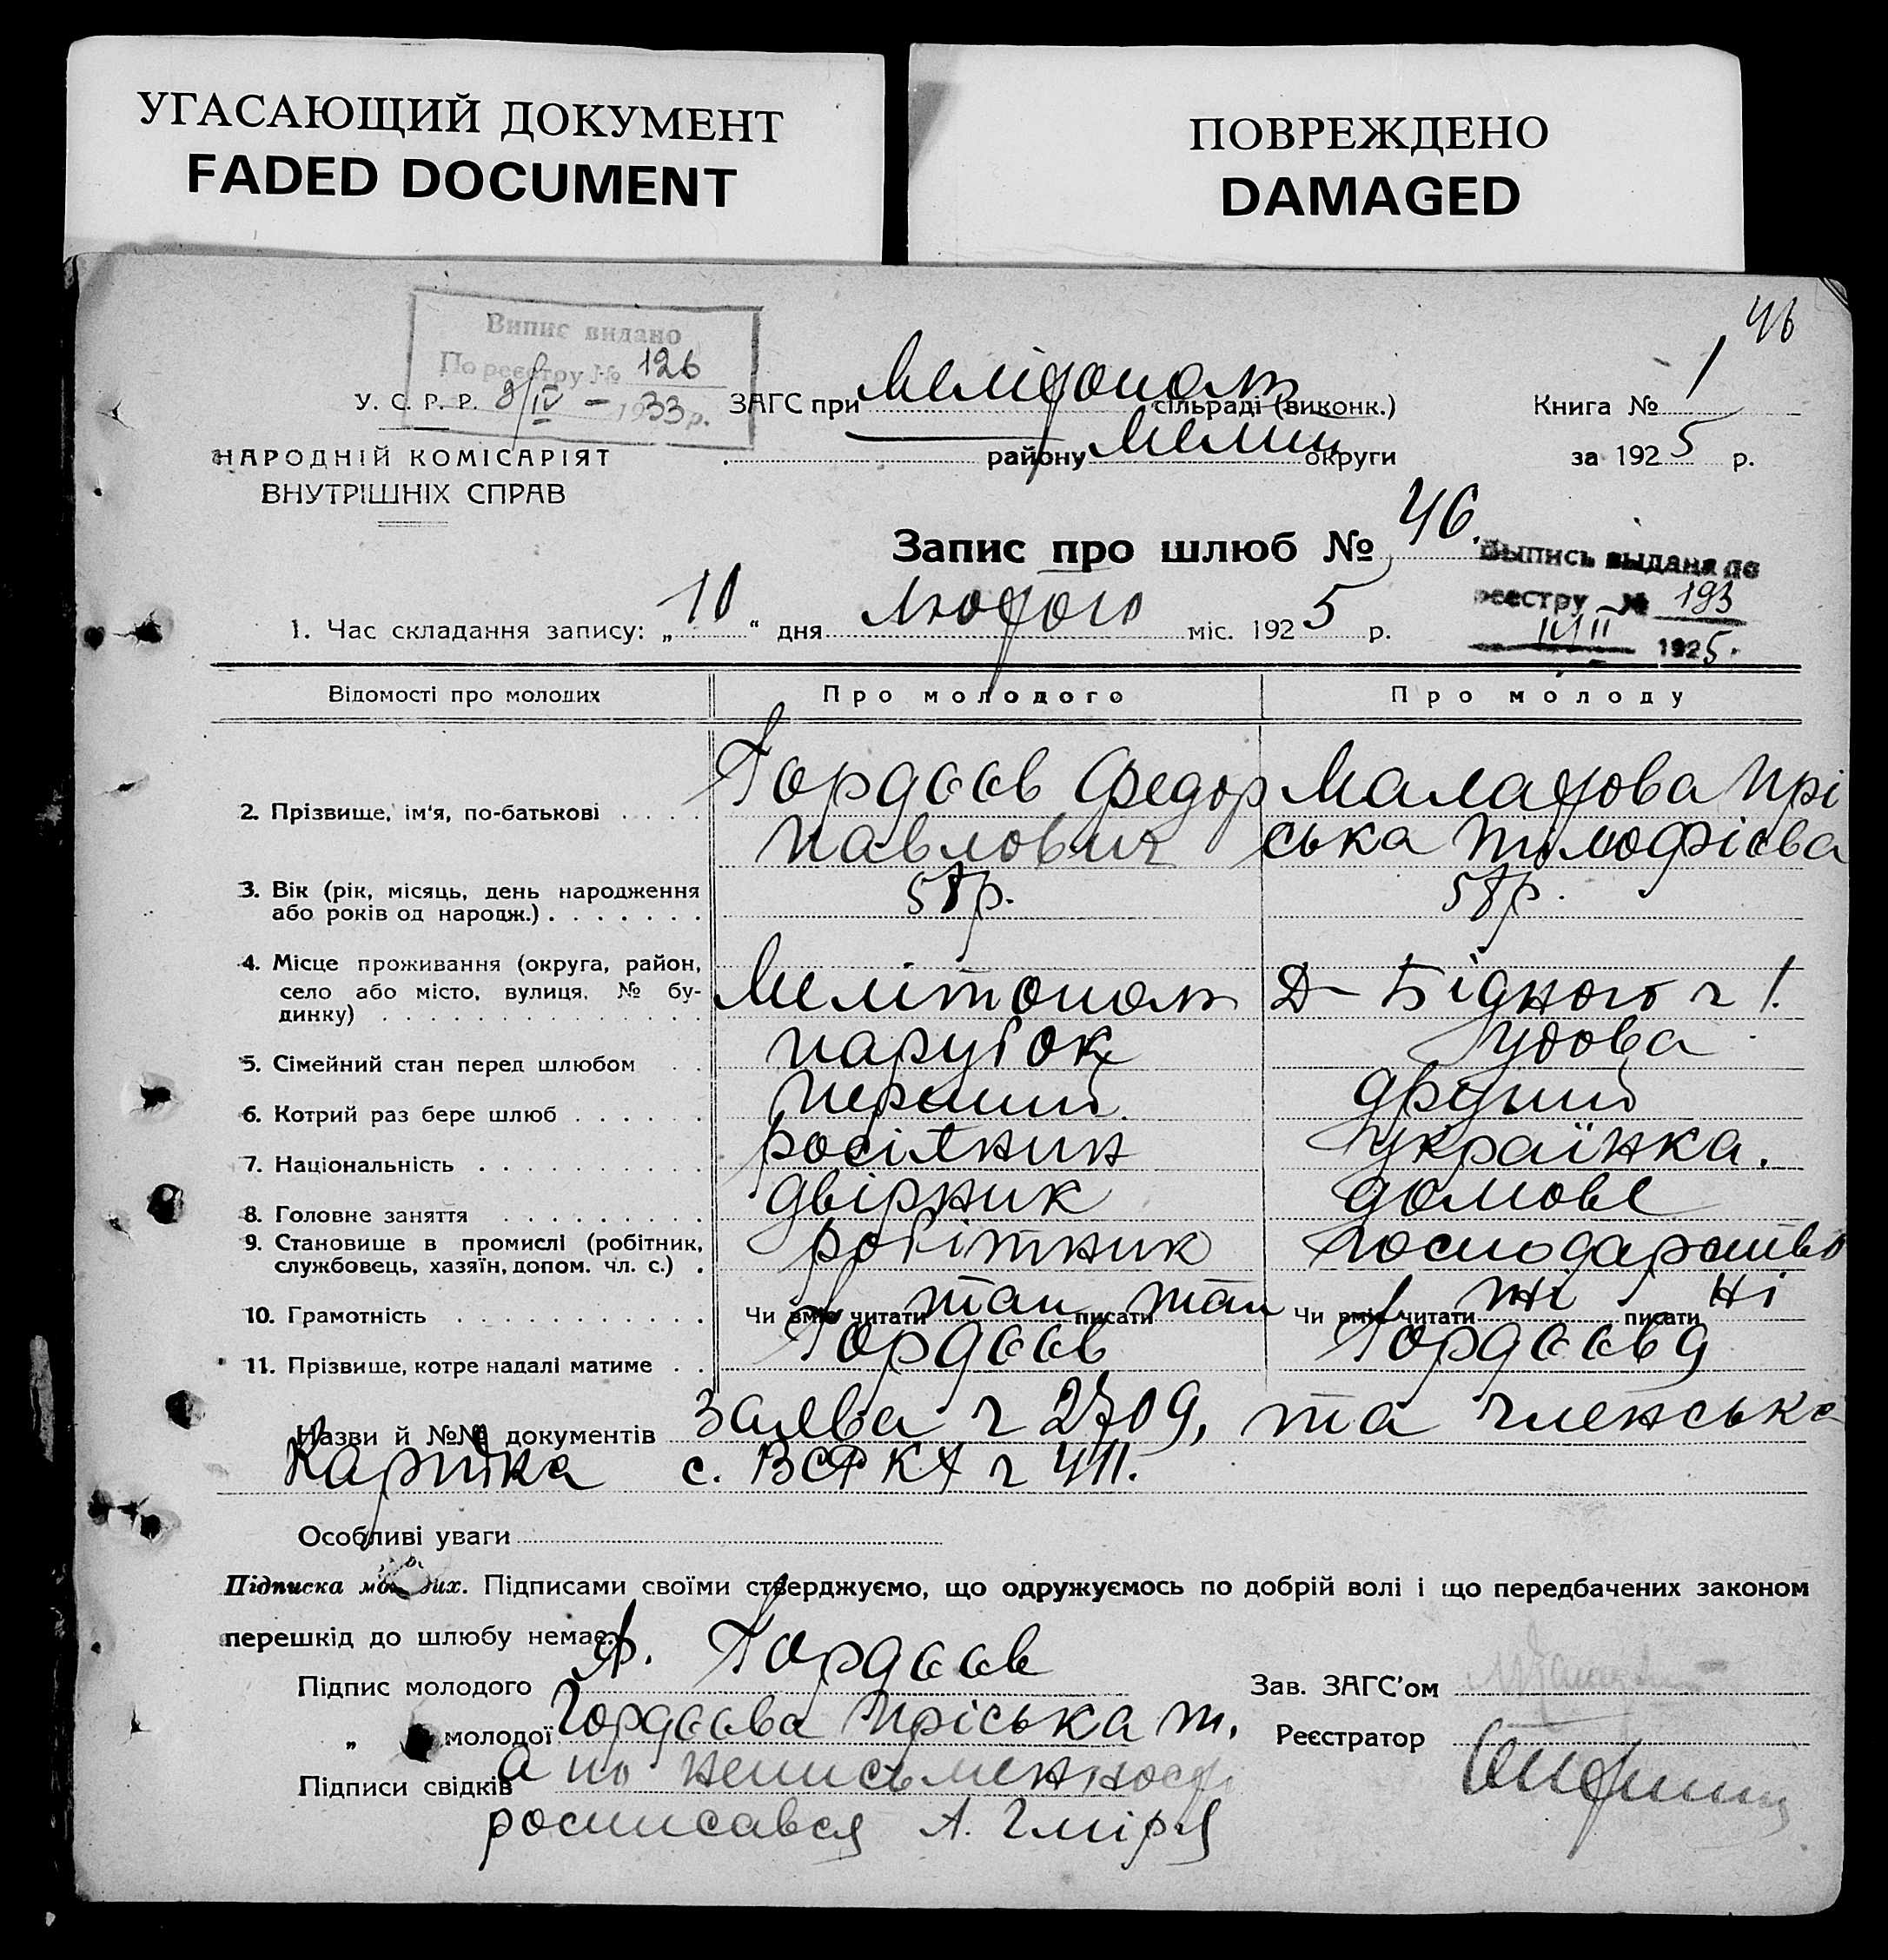 УГАСАЮЩИЙ ДОКУМЕНТ
FADED DOCUMENT
ПОВРЕЖДЕНО
DAMAGED
46
Випис видано
По реєстру № 126
8/IV - 1933 р.
У. С. Р. Р.
НАРОДНІЙ КОМІСАРІЯТ
ВНУТРІШНІХ СПРАВ
ЗАГС при Мелітополь сільраді (виконк.)
району Меліт округи
Книга № 1
за 1925 р.
Запис про шлюб № 46.
Выпись выдана по
реестру № 193
14/II 1925.
1. Час складання запису: „10“ дня Лютого міс. 1925 р.
Відомості про молодих Про молодого Про молоду
2. Прізвище, ім'я, по-батькові Гордєєв Федор Павлович Малахова Пріська Тімофієва
3. Вік (рік, місяць, день народження
або років од народж.) 58р. 58р.
4. Місце проживання (округа, район,
село або місто, вулиця, № будинку) Мелітополь Д-Бідного ч 1.
5. Сімейний стан перед шлюбом парубок удова
6. Котрий раз бере шлюб перший другий
7. Національність росіянин українка.
8. Головне заняття двірник домове
9. Становище в промислі (робітник,
службовець, хазяїн, допом. чл. с.) робітник господарство
10. Грамотність Чи вміє читати так писати так Чи вміє читати ні писати ні
11. Прізвище, котре надалі матиме Гордєєв Гордєєва
Назви й №№ документів Заява ч 2709, та членська
картка с. ч 411.
Особливі уваги
Підписка молодих. Підписами своїми стверджуємо, що одружуємось по добрій волі і що передбачених законом
перешкід до шлюбу немає.
Підпис молодого Ф. Гордєєв
„ молодої Гордєєва Пріська Т.
Підписи свідків а по неписьменности
росписався А.
Зав. ЗАГС'ом
Реєстратор